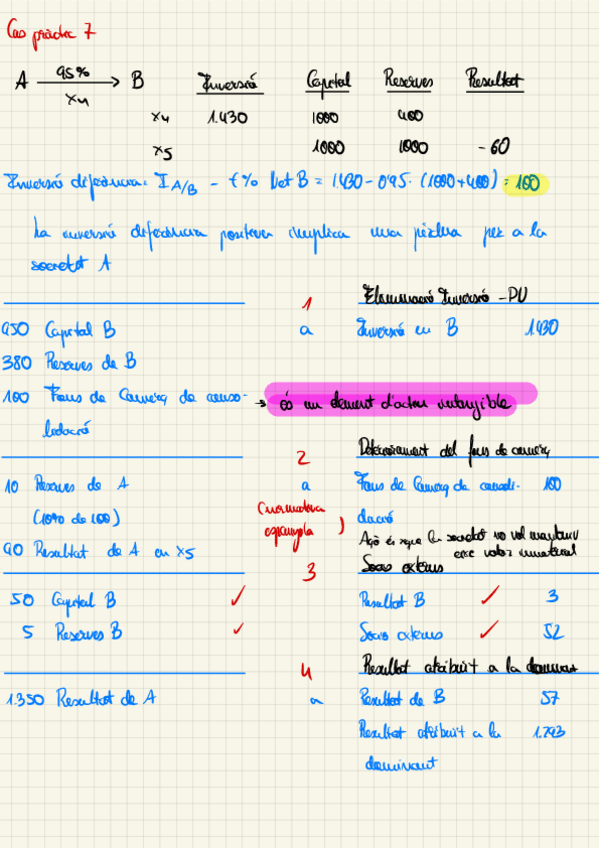 Cas pràctic 7
A 95% B Inversió Capital Reserves Resultat
X4
X4 1.430 1000 400
X5 1000 1000 -60
Inversió diferència: I A/B - t% Net B = 1.430 - 0'95 · (1000+400) = 100
La inversió diferència positiva implica una pèrdua per a la
societat A
1 Eliminació Inversió - PN
950 Capital B a Inversió en B 1430
380 Reserves de B
100 Fons de Comerç de conso- → és un element d'actiu intangible
lidació
2 Deteriorament del fons de comerç
10 Reserves de A a Fons de Comerç de consoli- 100
(10% de 100) (normativa espanyola) dació
90 Resultat de A en X5 Açò és que la societat no vol mantindre
eixe valor immaterial
3 Socis externs
50 Capital B ✓ Resultat B ✓ 3
5 Reserves B ✓ Socis externs ✓ 52
4 Resultat atribuït a la dominant
1.350 Resultat de A a Resultat de B 57
Resultat atribuït a la 1.293
dominant